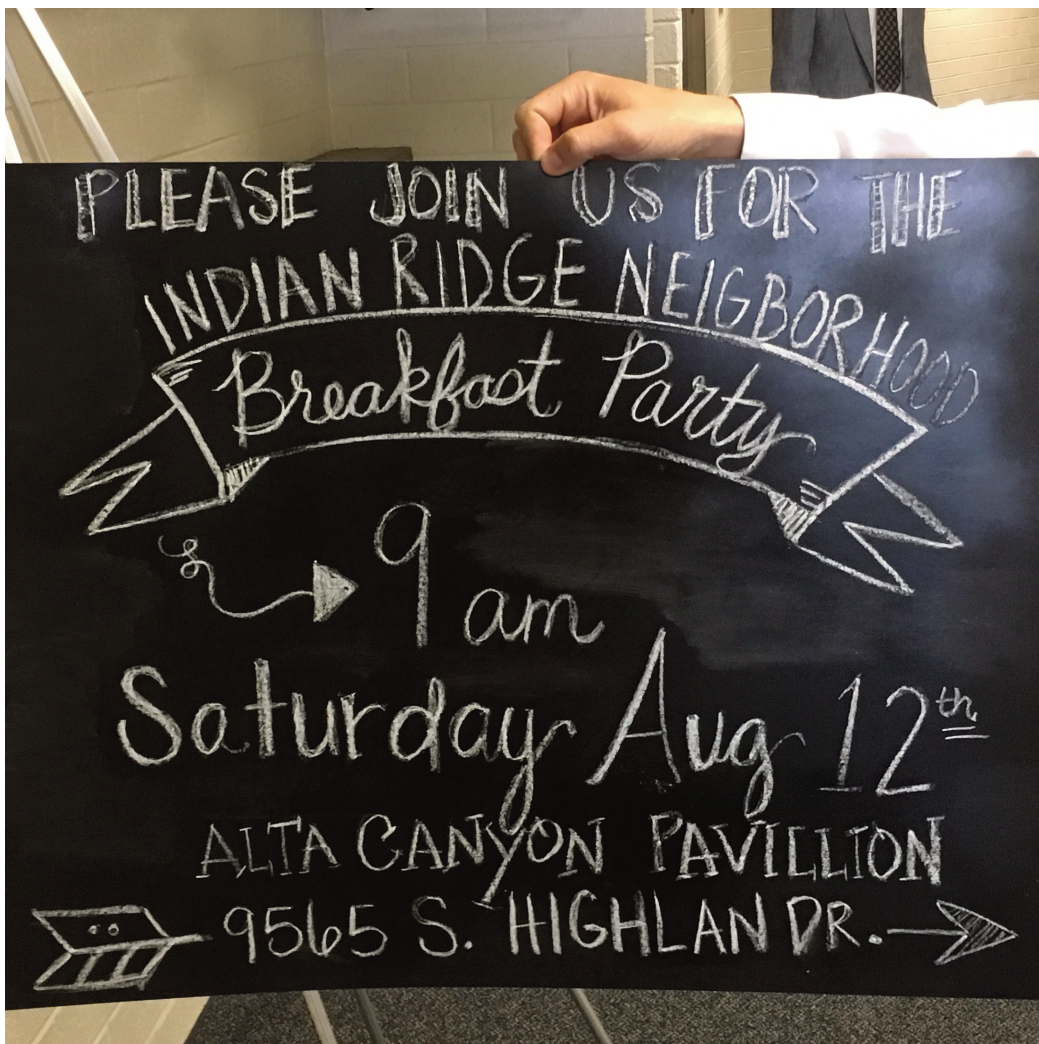 PLEASE JOIN US FOR THE
INDIAN RIDGE NEIGBORHOOD
Breakfast Party
9 am
Saturday Aug 12th
ALTA CANYON PAVILLION
9565 S. HIGHLAN DR.